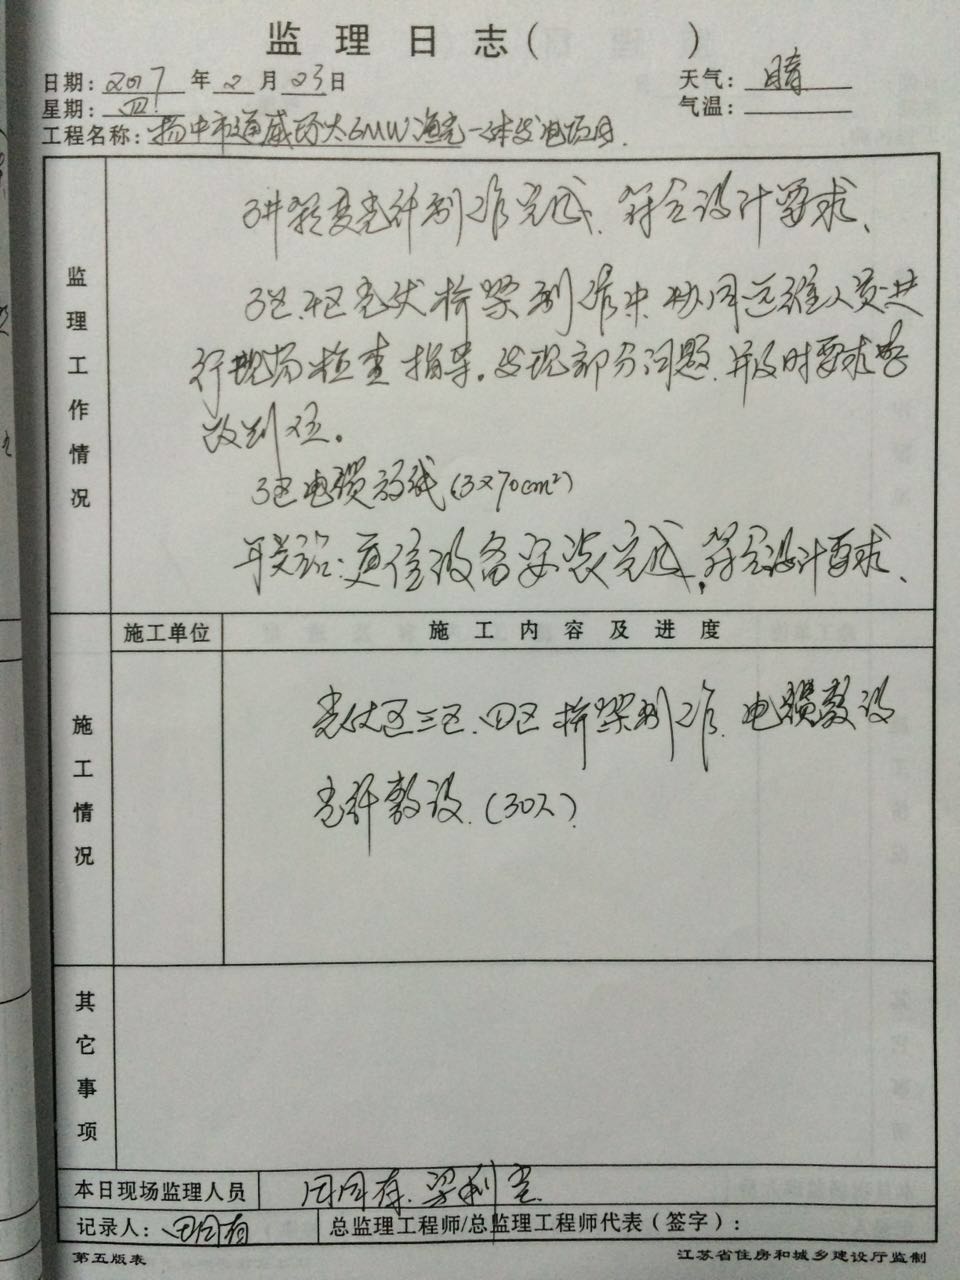 监理日志（ ）
日期：2017年2月23日 天气：晴
星期：四 气温：
工程名称：扬中市通威 渔光一体发电项目
监理工作情况
光纤制作完成、符合设计要求、
3区、4区光伏桥架制作中 协同运维人员进
行现场检查指导。发现部分问题、并及时要求整
改到位。
3区电缆放线（3×70cm²）
开关站：通信设备安装完成，符合设计要求、
施工情况
施工单位 施工内容及进度
光伏区三区、四区桥架制作、电缆敷设
光纤敷设、（30人）
其它事项
本日现场监理人员
记录人：
总监理工程师/总监理工程师代表（签字）：
第五版表 江苏省住房和城乡建设厅监制